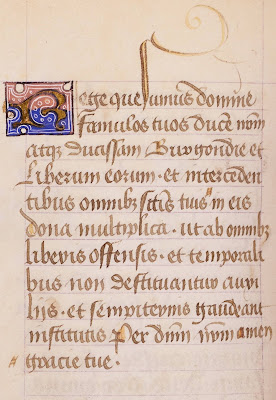 Rege quesumus domine
famulos tuos ducē nrm̄
atqꝫ ducissam Burgondie et
liberum eorum · et interceden
tibus omnibꝫ sctīs tuis in eis
dona multiplica · ut ab omnibꝫ
liberis offensis · et temporali
bus non destituantur auxi
liis · et sempiternis gaudeant
institutis Per dnm̄ nrm̄ amen
gracie tue ·